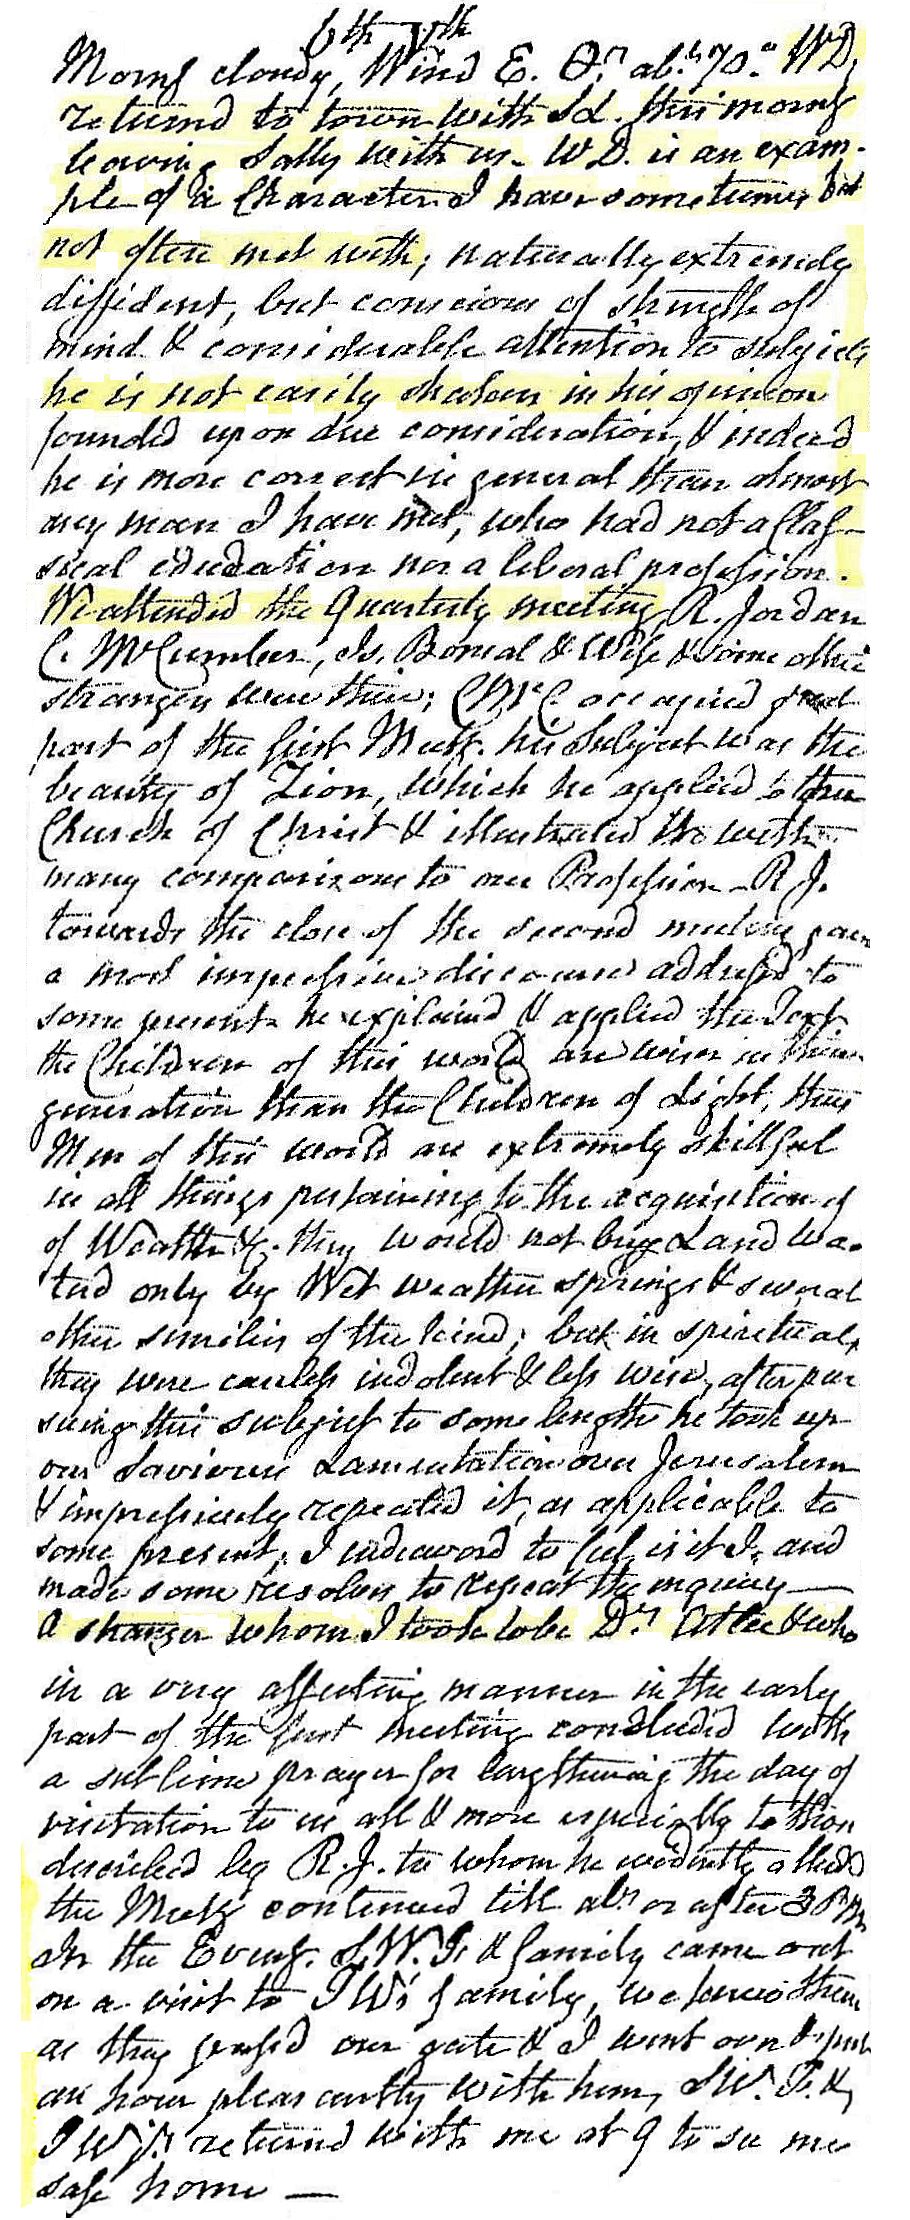 6th 5th
Morng cloudy, Wind E. Ther abt 70.° WD,
returnd to town with Sd. this morng
leaving Sally with us. WD. is an exam-
ple of a Character I have sometimes but
not often met with; naturally extremely
diffident, but conscious of strength of
mind & considerable attention to subjects
he is not easily shaken in his opinion
founded upon due consideration, & indeed
he is more correct in general than almost
any man I have met, who had not a Clas-
sical education nor a liberal profession.
We attended the Quarterly meeting, R. Jordan
C. McCumber, Is. Bonsal & Wife & some other
strangers were there; CMcC occupied great
part of the first Meetg. his Subject was the
beauty of Zion, which he applied to the
Church of Christ & illustrated the with
many comparisons to our Profession - R J.
towards the close of the second meeting gave
a most impressive discourse addressed to
some present he explained & applied the Text
the Children of this world are wiser in their
generation than the Children of Light, thus
Men of this world are extremely skillful
in all things pertaining to the acquisition of
of Wealth &c. they would not buy Land wa-
tered only by Wet weather springs & several
other similies of the kind; but in spirituals
they were careless indolent & less wise, after pur
suing this subject to some length he took up
our Saviours Lamentation over Jerusalem
& impressively repeated it, as applicable to
some present, I endeavord to feel, is it I, and
made some resolves to repeat the enquiry —
A stranger whom I took to be Dr. Atlee & who
in a very affecting manner in the early
part of the first meeting concluded with
a sublime prayer for lengthening the day of
visitation to us all & more especially to those
described by R. J. to whom he evidently alluded
the Meetg continued till abt or after 3 PM
In the Eveng. S.W. Jr & family came out
on a visit to JW's family, we knew them
as they passd our gate & I went over & spent
an hour pleasantly with them, SW. Jr. &
J W Jr. returned with me at 9 to see me
safe home —